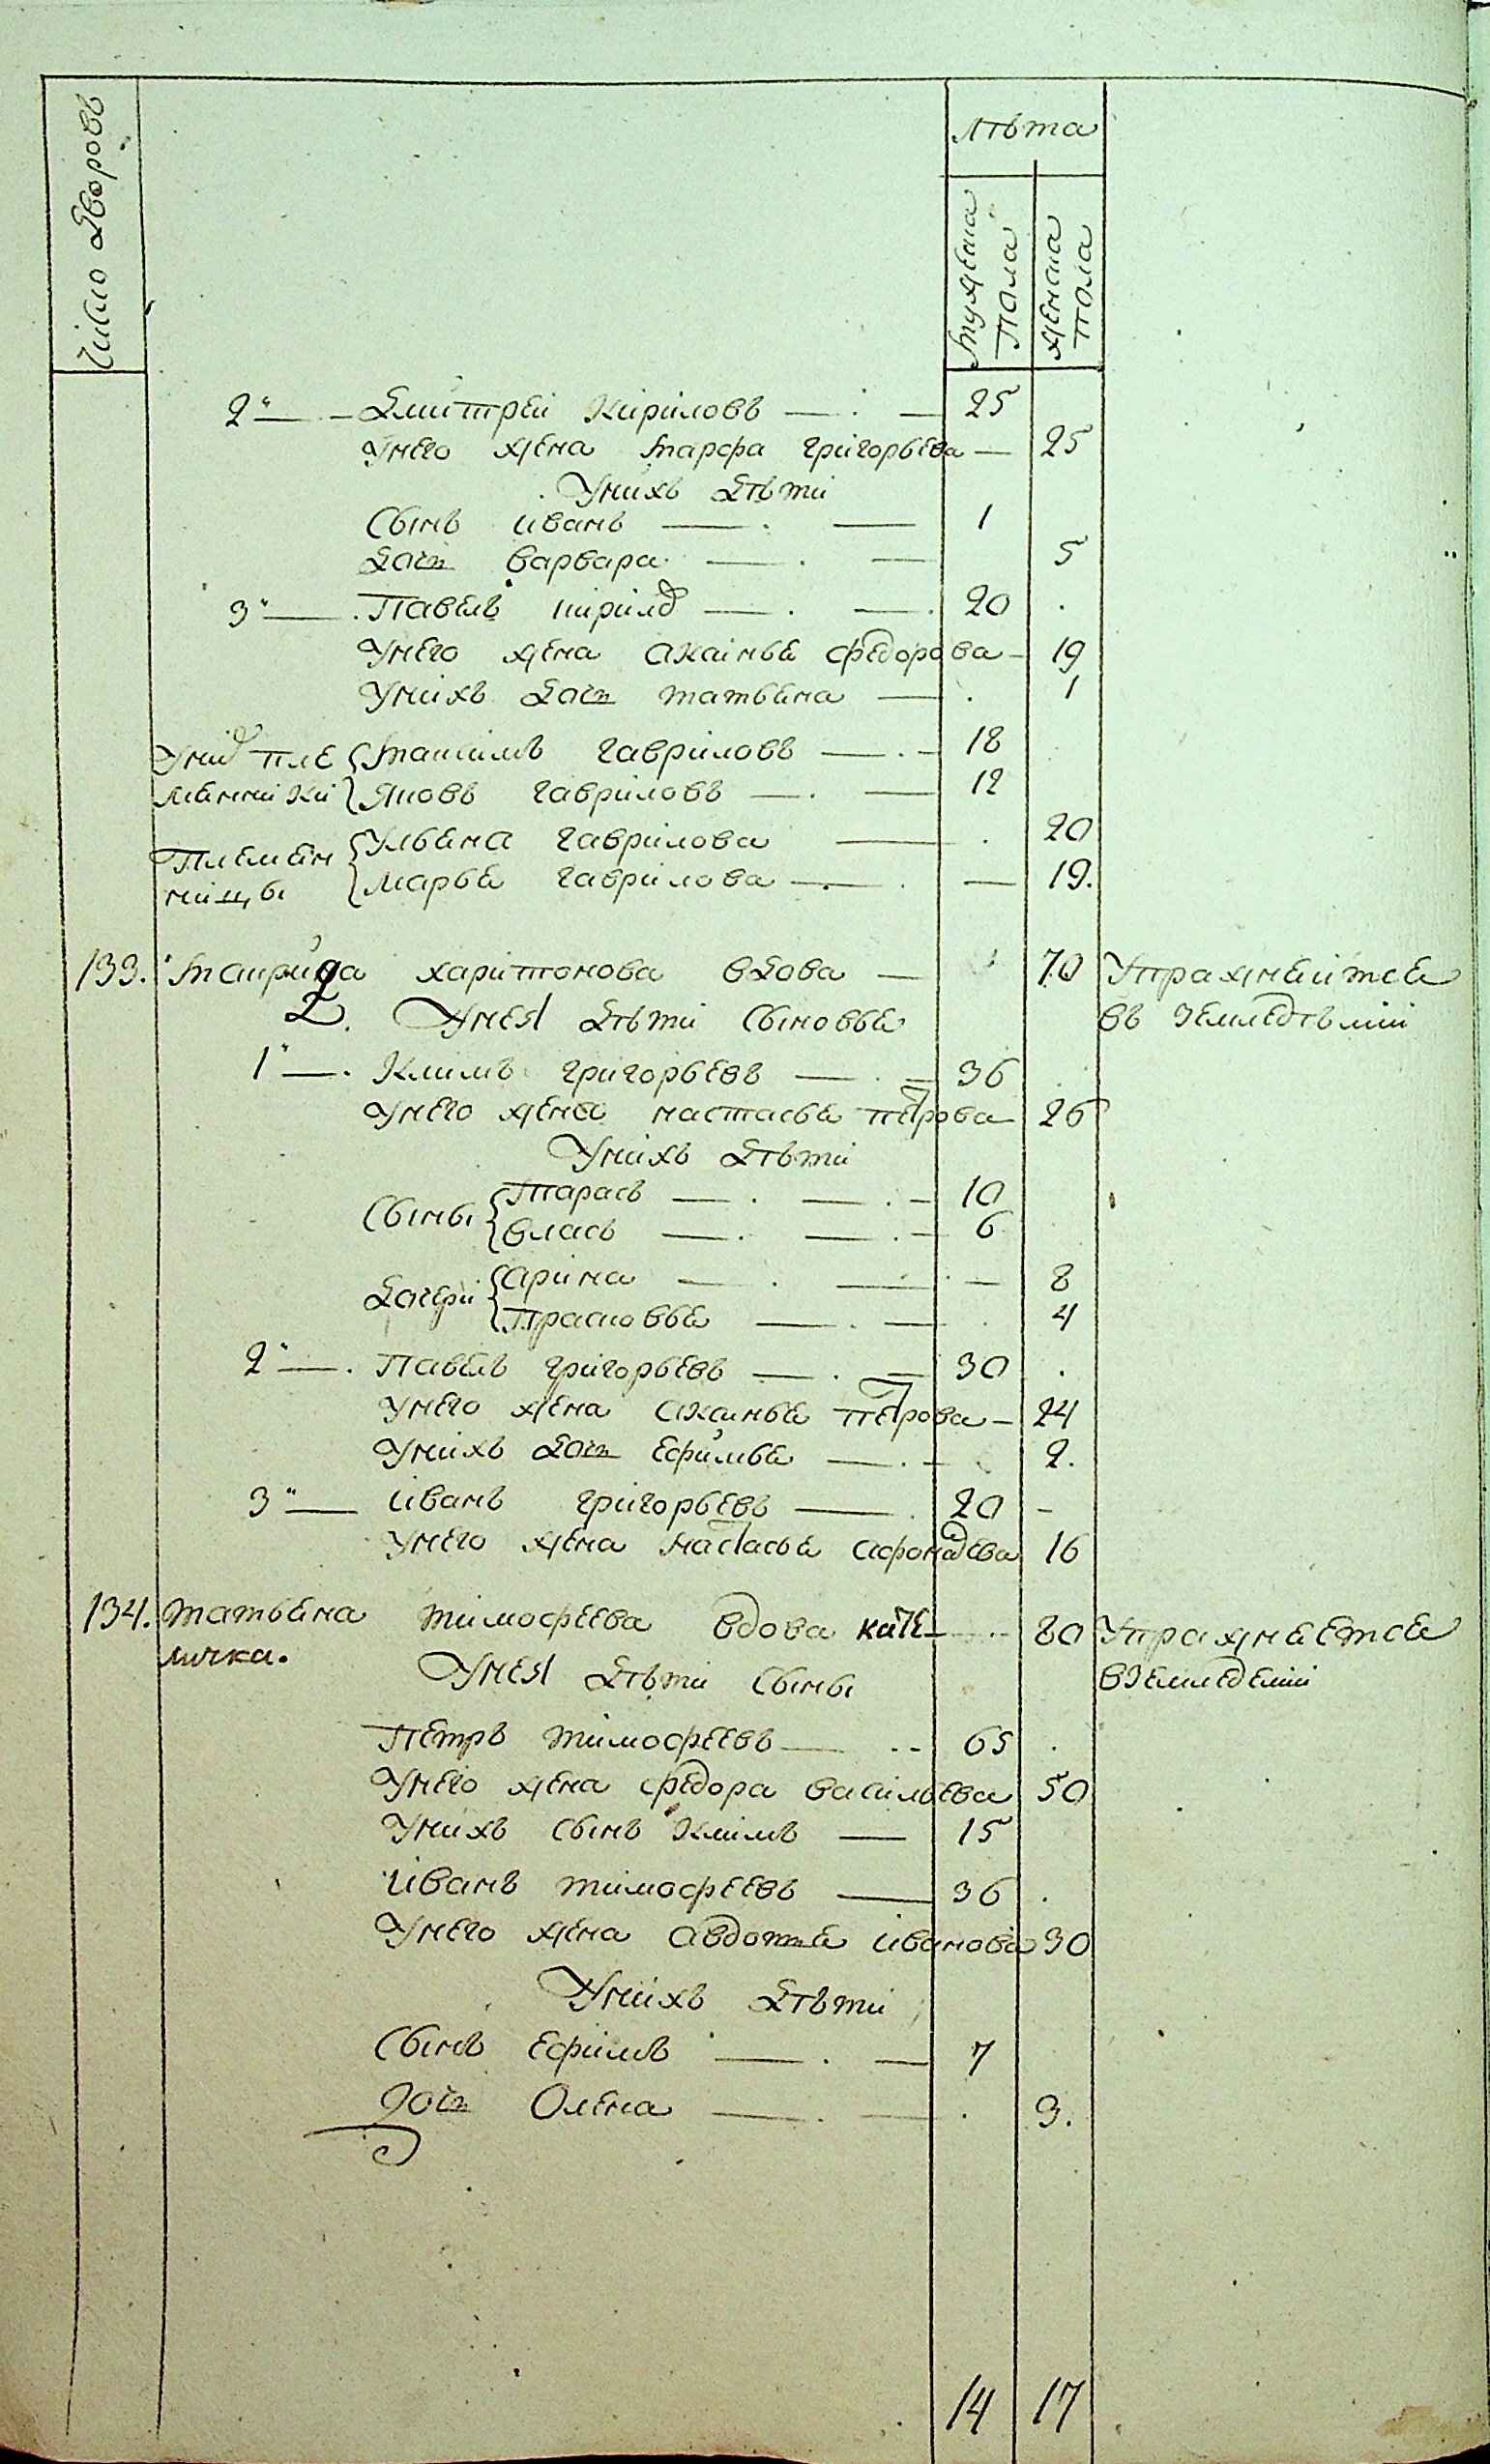 Число Дворовъ
Лѣта
мужеска пола
женска пола
2" Дмитрей Кириловъ 25
Унего жена марфа григорьева 25
Унихъ Дѣти
Сынъ иванъ 1
Дочь варвара 5
3" Павелъ кирилов 20
Унего жена акилина федорова 19
Унихъ Дочь татьяна 1
Уних пле {максимъ гавриловъ 18
мянники {Яковъ гавриловъ 12
Племян {Ульяна гаврилова 20
ницы {марья гаврилова 19.
133. харитонова вдова 70 Упражняйтся
2. Унея Дѣти Сыновья въ земледѣлии
1" Климъ григорьевъ 36
Унего жена настасья петрова 26
Унихъ Дѣти
Сыны {Тарасъ 10
{власъ 6
Дочери {арина 8
{Прасковья 4
2" Павелъ григорьевъ 30
Унего жена петрова 24
Унихъ Дочь Ефимья 2.
3" иванъ григорьевъ 20
Унего жена настасья 16
134. татьяна тимофеева вдова кате 80 Упражняется
личка. Унея Дѣти Сыны вземледелии
Петръ тимофеевъ 65
Унего жена федора васильева 50
Унихъ сынъ Климъ 15
иванъ тимофеевъ 36
Унего жена авдотья иванова 30
Унихъ Дѣти
Сынъ ефимъ 7
Дочь Олена 3.
14 17